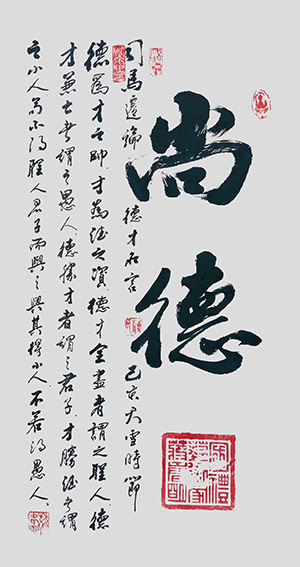 尚德
司馬遷論德才名言 己亥大雪時節
德為才之帥才為德之資德才全盡者謂之聖人德
才兼亡者謂之愚人德勝才者謂之君子才勝德者謂
之小人苟不得聖人君子而與之與其得小人不若得愚人